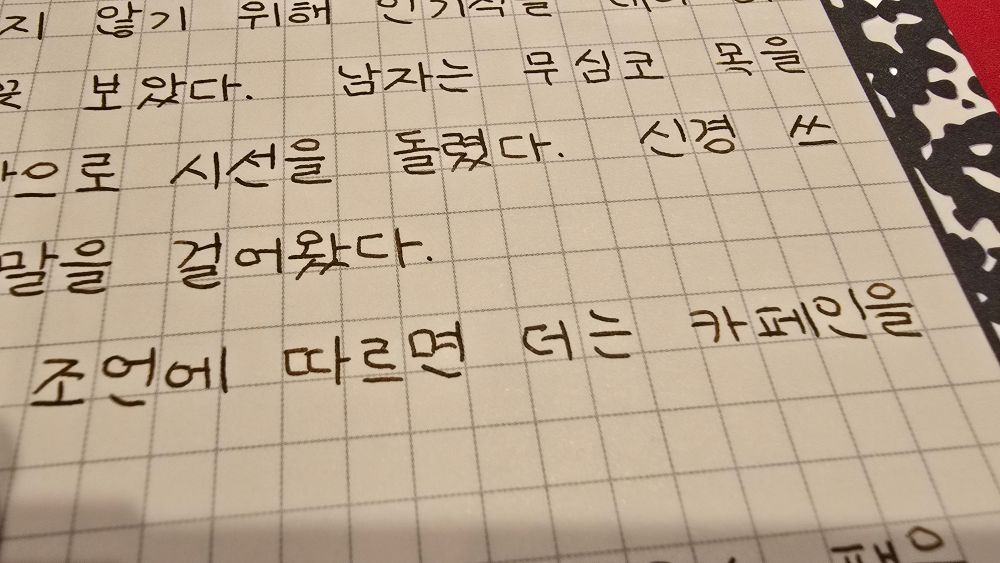 지 않기 위해
보았다. 남자는 무심코 목을
으로 시선을 돌렸다. 신경 쓰
말을 걸어왔다.
조언에 따르면 더는 카페인을